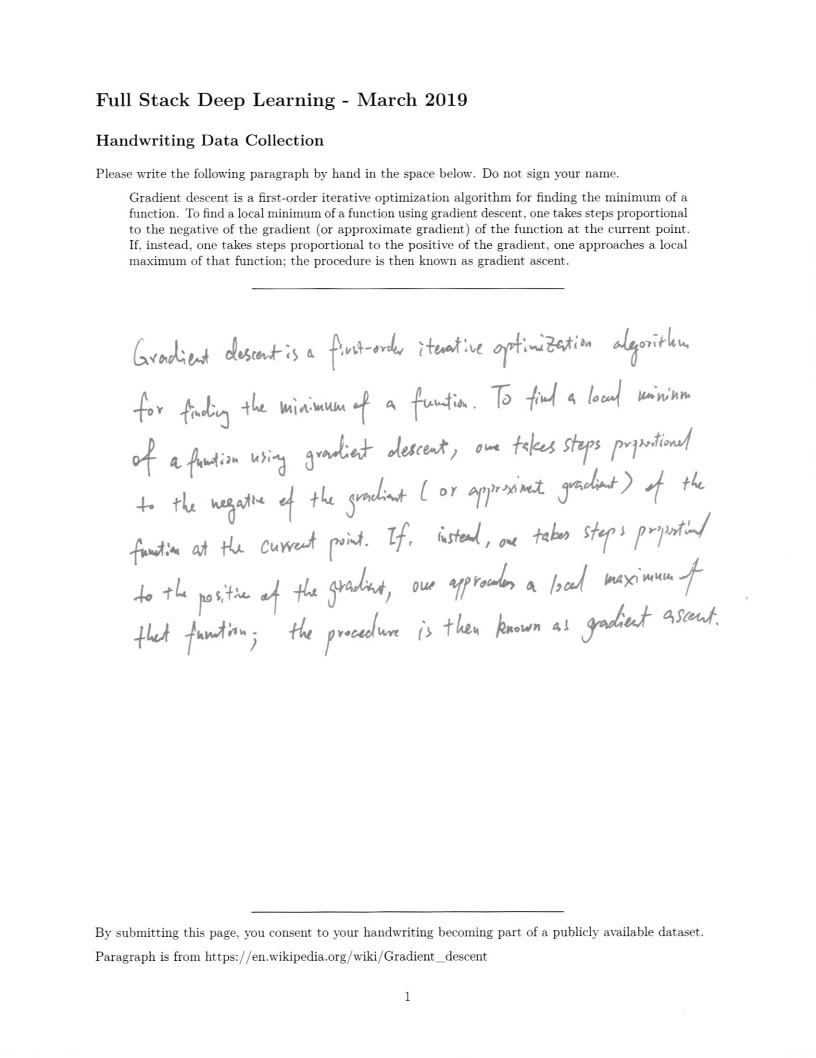 Full Stack Deep Learning - March 2019
Handwriting Data Collection
Please write the following paragraph by hand in the space below. Do not sign your name.
Gradient descent is a first-order iterative optimization algorithm for finding the minimum of a
function. To find a local minimum of a function using gradient descent, one takes steps proportional
to the negative of the gradient (or approximate gradient) of the function at the current point.
If, instead, one takes steps proportional to the positive of the gradient, one approaches a local
maximum of that function; the procedure is then known as gradient ascent.
Gradient descent is a first-order iterative optimization algorithm
for finding the minimum of a function. To find a local mininm
of a function using gradient descent, one takes steps prportional
to the negative of the gradient (or approximat gradient) of the
function at the current point. If, instead, one takes steps proportional
to the positive of the gradient, one approaches a local maximum of
that function; the procedure is then known as gradient ascent.
By submitting this page, you consent to your handwriting becoming part of a publicly available dataset.
Paragraph is from https://en.wikipedia.org/wiki/Gradient_descent
1